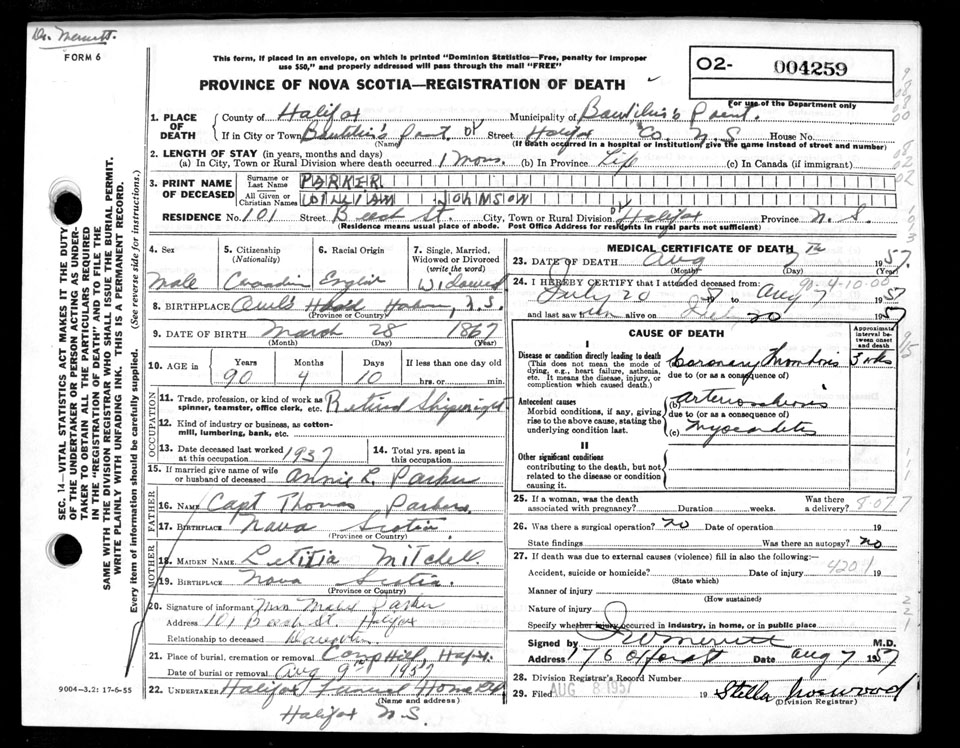 Dr. Merritt.
FORM 6
This form, if placed in an envelope, on which is printed "Dominion Statistics—Free, penalty for improper
use $50," and properly addressed will pass through the mail "FREE"
PROVINCE OF NOVA SCOTIA—REGISTRATION OF DEATH
O2- 004259
For use of the Department only
1. PLACE OF DEATH
County of Halifax Municipality of Point.
If in City or Town Point Street Halifax Co. N.S House No.
(Name) (If death occurred in a hospital or institution, give the name instead of street and number)
2. LENGTH OF STAY (in years, months and days)
(a) In City, Town or Rural Division where death occurred 1 Mons. (b) In Province Life (c) In Canada (if immigrant)
3. PRINT NAME OF DECEASED
Surname or Last Name PARKER
All Given or Christian Names WILLIAM JOHNSON
RESIDENCE No. 101 Street Beech St. City, Town or Rural Division Halifax Province N.S.
(Residence means usual place of abode. Post Office Address for residents in rural parts not sufficient)
4. Sex Male
5. Citizenship (Nationality) Canadian
6. Racial Origin English
7. Single, Married, Widowed or Divorced (write the word) Widowed
8. BIRTHPLACE Owls Head Harbour, N.S.
(Province or Country)
9. DATE OF BIRTH March 28 1867
(Month) (Day) (Year)
10. AGE in Years 90 Months 4 Days 10 If less than one day old hrs. or min.
OCCUPATION
11. Trade, profession, or kind of work as spinner, teamster, office clerk, etc. Retired Shipwright
12. Kind of industry or business, as cotton-mill, lumbering, bank, etc.
13. Date deceased last worked at this occupation 1937
14. Total yrs. spent in this occupation
15. If married give name of wife or husband of deceased Annie L. Parker
FATHER
16. NAME Capt Thomas Parker
17. BIRTHPLACE Nova Scotia
(Province or Country)
MOTHER
18. MAIDEN NAME Letitia Mitchell.
19. BIRTHPLACE Nova Scotia.
(Province or Country)
20. Signature of informant Mrs Parker
Address 101 Beech St. Halifax
Relationship to deceased Daughter.
21. Place of burial, cremation or removal Camp Hill Hfx.
Date of burial or removal Aug 9th 1957
22. UNDERTAKER Halifax Funeral Home
(Name and address)
Halifax N.S.
9004—3.2: 17-6-55
MEDICAL CERTIFICATE OF DEATH
23. DATE OF DEATH Aug 7th 1957.
(Month) (Day) (Year)
90-4-10.00
24. I HEREBY CERTIFY that I attended deceased from:
July 20 57 to Aug 7 1957
and last saw him alive on July 20 1957
CAUSE OF DEATH
Approximate interval between onset and death
I
Disease or condition directly leading to death
(This does not mean the mode of dying, e.g., heart failure, asthenia, etc. It means the disease, injury, or complication which caused death.)
(a) Coronary Thrombosis 3 wks
due to (or as a consequence of)
Antecedent causes
Morbid conditions, if any, giving rise to the above cause, stating the underlying condition last.
(b) arteriosclerosis
due to (or as a consequence of)
(c) Myocarditis
II
Other significant conditions
contributing to the death, but not related to the disease or condition causing it.
25. If a woman, was the death associated with pregnancy? Duration weeks. Was there a delivery? 8077
26. Was there a surgical operation? no Date of operation 19
State findings Was there an autopsy? no
27. If death was due to external causes (violence) fill in also the following:—
Accident, suicide or homicide? Date of injury 4201 19
(State which)
Manner of injury
(How sustained)
Nature of injury
Specify whether injury occurred in industry, in home, or in public place
Signed by Merritt M.D.
Address 76 Oxford St Date Aug 7 1957
28. Division Registrar's Record Number
29. Filed AUG 8 1957 19 Stella Norwood
(Division Registrar)
SEC. 14—VITAL STATISTICS ACT MAKES IT THE DUTY
OF THE UNDERTAKER OR PERSON ACTING AS UNDER-
TAKER TO OBTAIN ALL THE PARTICULARS REQUIRED
IN THE "REGISTRATION OF DEATH" AND TO FILE THE
SAME WITH THE DIVISION REGISTRAR WHO SHALL ISSUE THE BURIAL PERMIT.
WRITE PLAINLY WITH UNFADING INK. THIS IS A PERMANENT RECORD.
Every item of information should be carefully supplied. (See reverse side for instructions.)